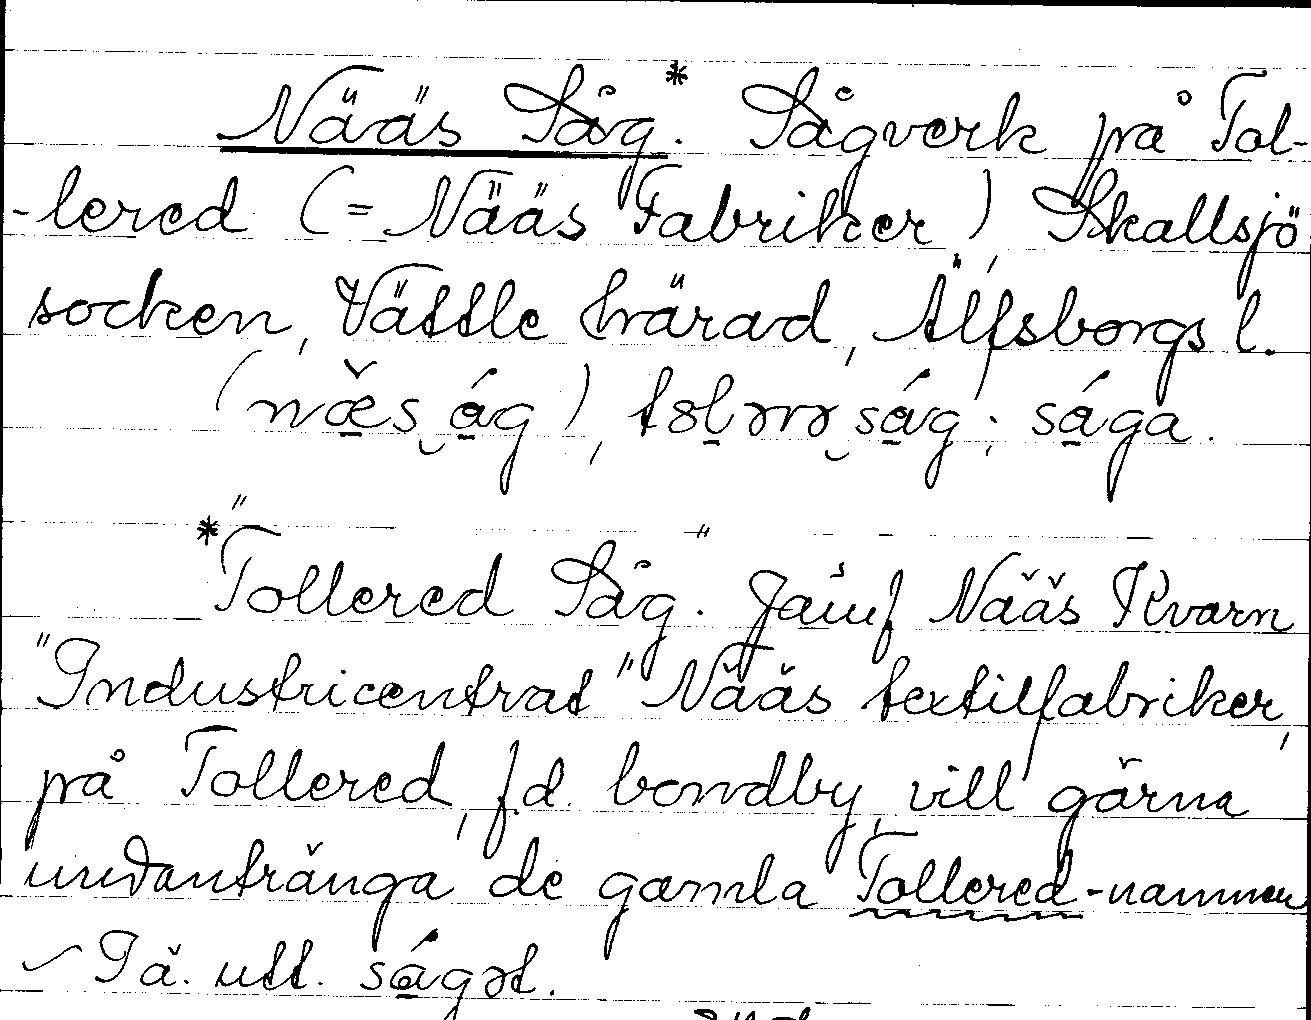 Nääs Såg.* Sågverk på Tol-
-lered (= Nääs Fabriker) Skallsjö
socken, Vättle härad, Älfsborgs l.
*"Tollered Såg". Jämf Nääs Kvarn
"Industricentrat" Nääs textilfabriker,
på Tollered, f.d. bondby, vill gärna
undantränga de gamla Tollered-namnen